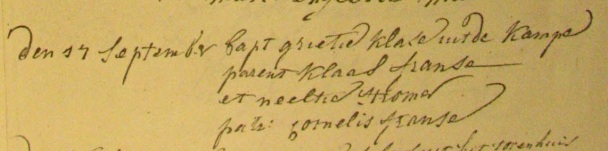 den 17 September bapt grietie klase uit de kampe
parent klaas franse
et neeltie
patr: cornelis franse